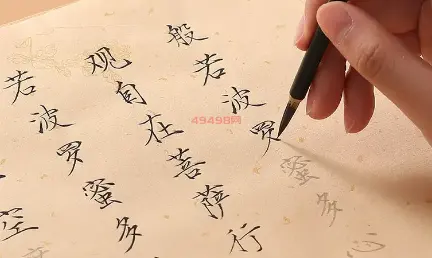 般若波罗蜜多心
观自在菩萨行
若波罗蜜多
空
49498网